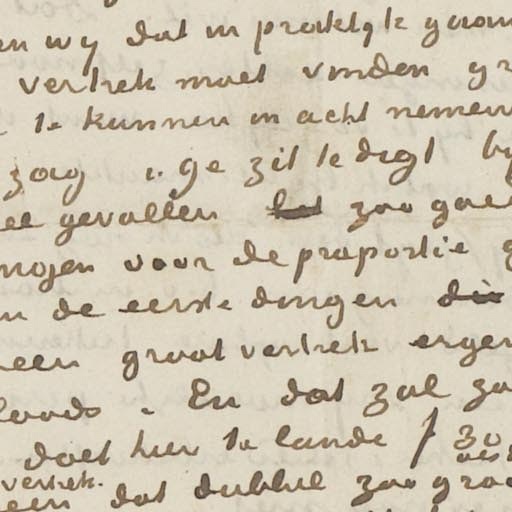 en wy dat in praktijk gaan
vertrek moet vinden
te kunnen in acht nemen
zag ". ge zit te digt by
gevallen zoo goed
mogen voor de proportie
de eerste dingen die
een groot vertrek ergen
loods. En dat zal
doet hier te lande
vertrek.
een dat dubbel zoo groo